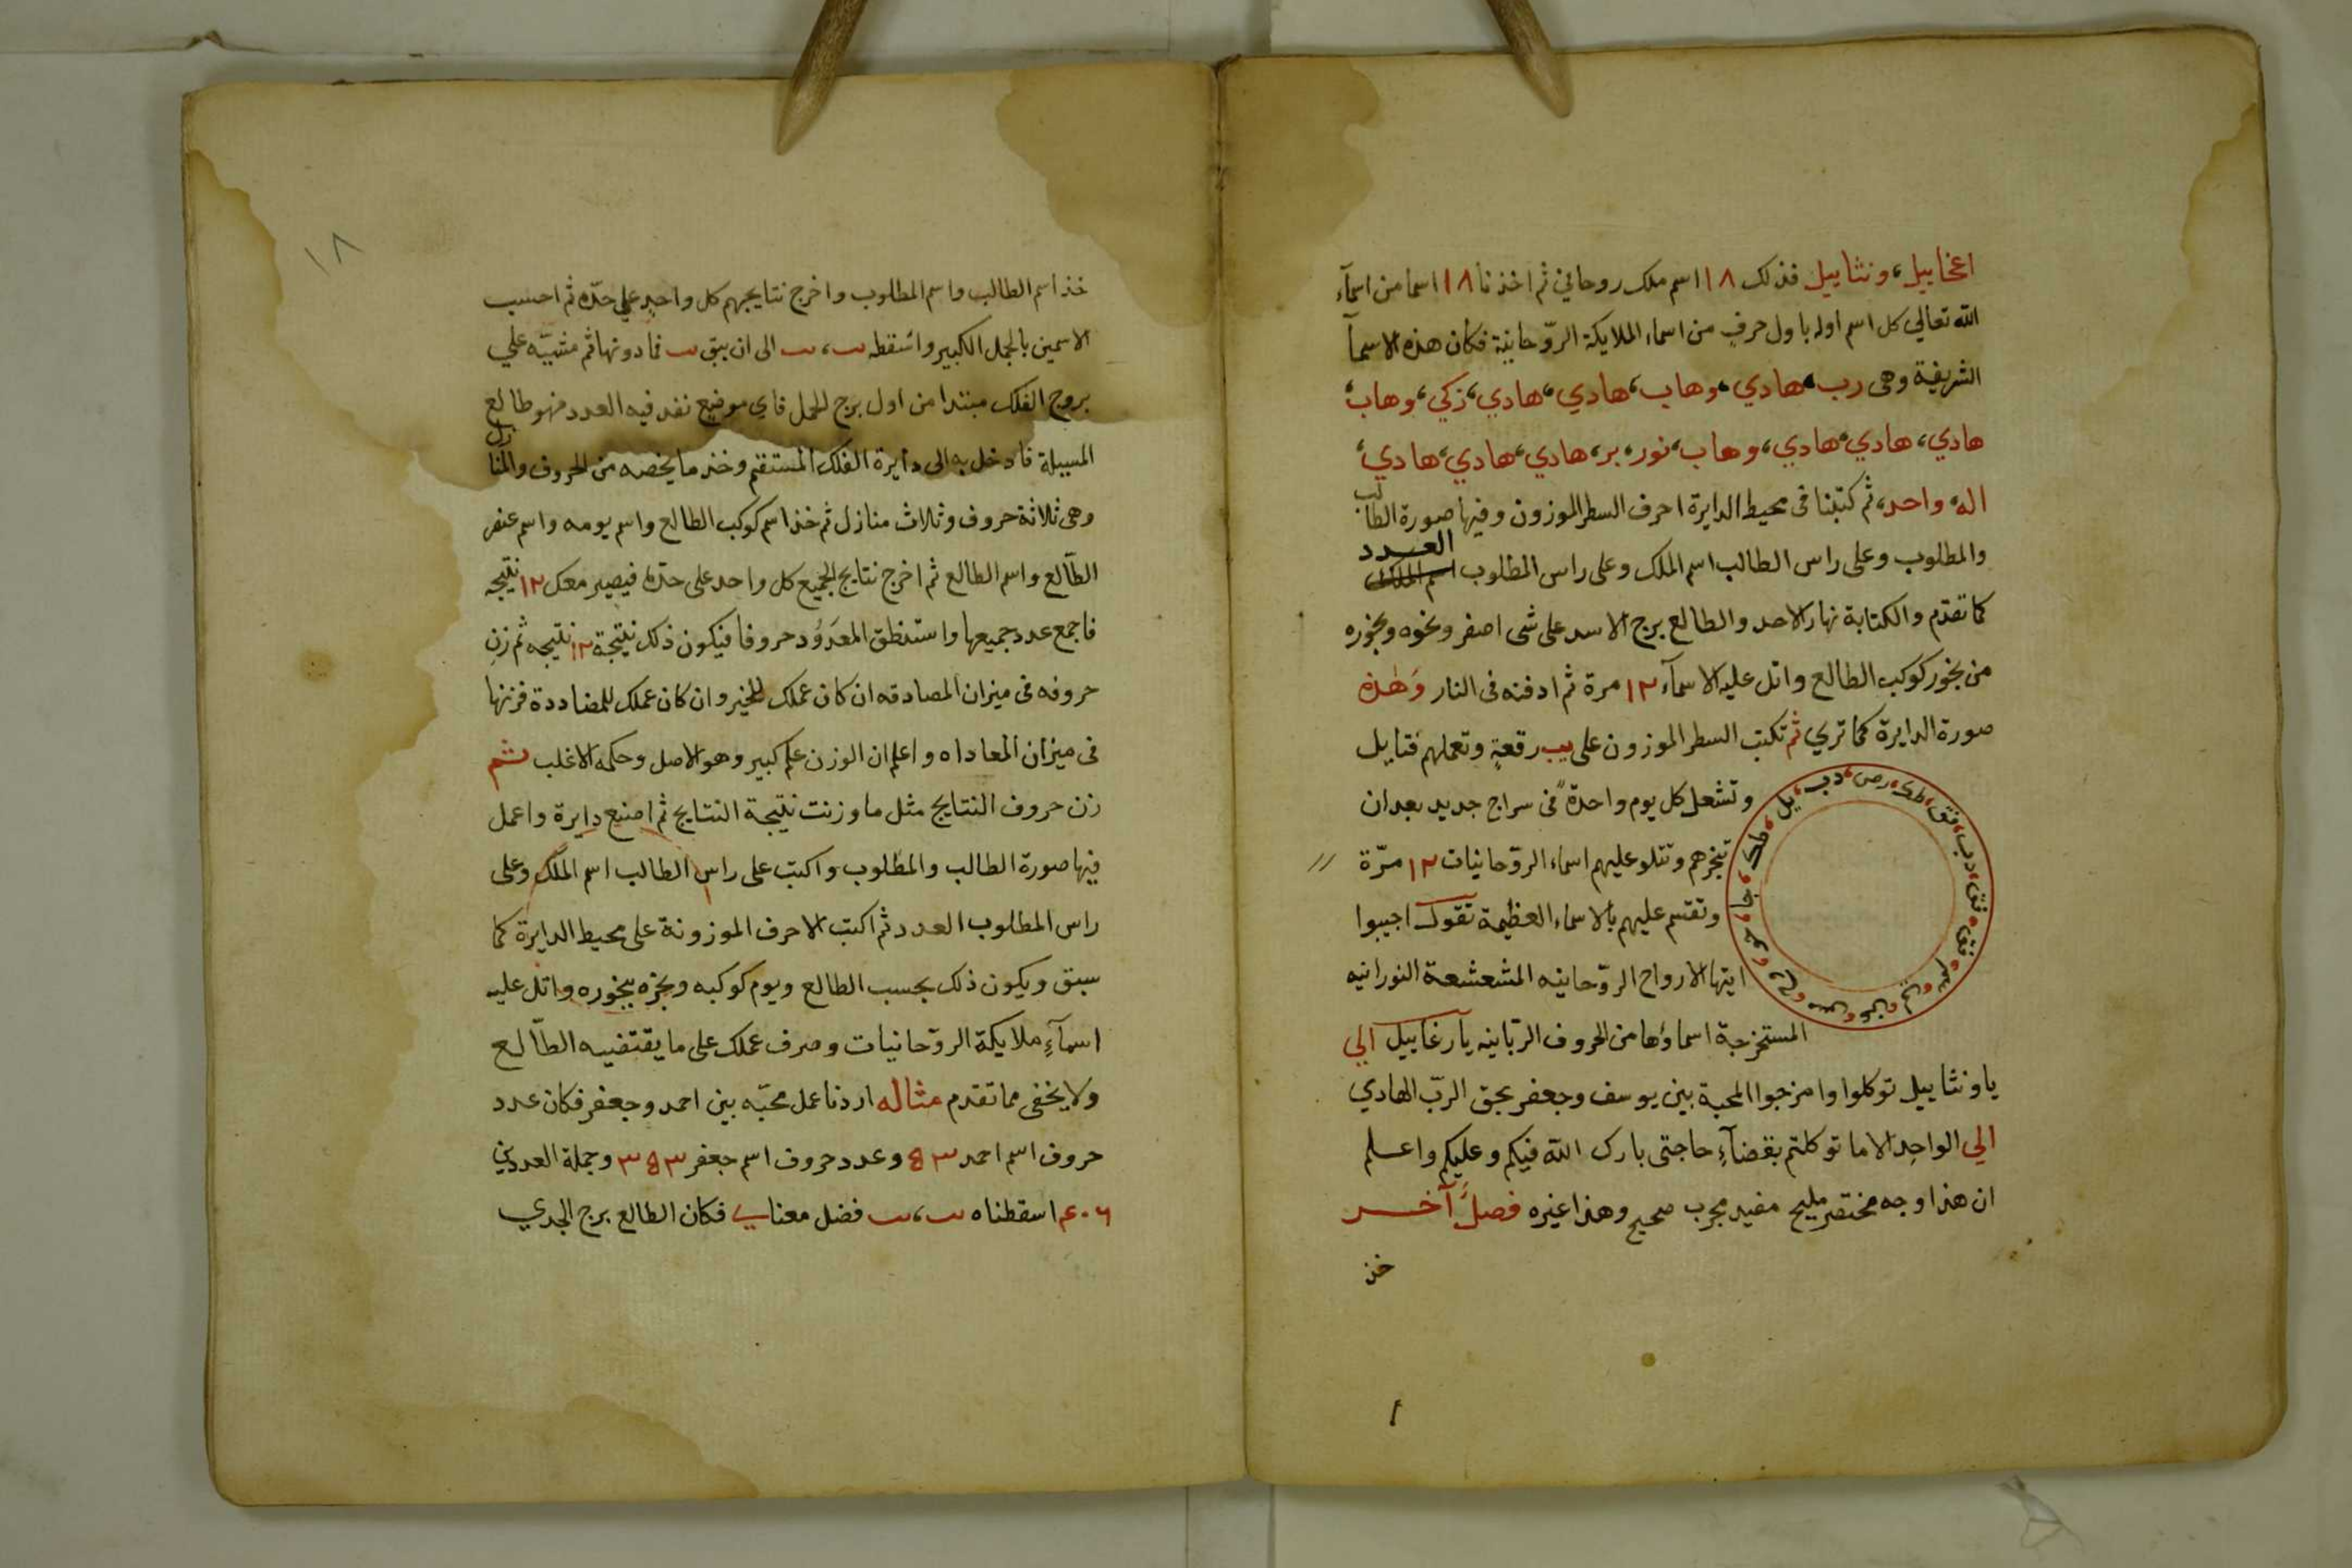 اعخاييل، ونثاييل فذلك ١٨ اسم ملك روحاني ثم اخذنا ١٨ اسما من اسمآء
الله تعالي كل اسم اوله باول حرف من اسماء الملايكة الروّحانية فكان هذه الاسمآ
الشريفة وهى رب، هادي، وهاب، هادي، هادي، زكي، وهاب،
هادي، هادي، هادي، وهاب، نور، بر، هادي، هادي، هادي،
اله، واحد، ثم كتبنا فى محيط الدايرة احرف السطر الموزون وفيها صورة الطالب
والمطلوب وعلى راس الطالب اسم الملك وعلى راس المطلوب العدد
كما تقدّم والكتابة نهار الاحد والطالع برج الاسد على شى اصفر ونحوه وبخوره
من بخور كوكب الطالع واتل عليه الاسمآء ١٢ مرة ثم ادفنه فى النار وَهٰذه
صورة الدايرة كما تري ثم تكتب السطر الموزون على يب رقعةٍ وتعملهم فتايل
وتشعل كل يوم واحدةً فى سراج جديد بعد ان
تبخرهم وتتلو عليهم اسماء الروّحانيات ١٢ مرّة
وتقسم عليهم بالاسماء العظيمة تقول اجيبوا
ايتها الارواح الروّحانيه المشعشعة النورانيه
المستخرجة اسماؤها من الحروف الربّانيه يا رغاييل الي
يا ونثاييل توكلوا وامزجوا المحبة بين يوسف وجعفر بحق الربّ الهادي
الي الواحِد الاما توكلتم بقضآءِ حاجتى بارك الله فيكم وعليكم واعلم
ان هذا وجه مختصر مليح مفيد مجرب صحيح وهذا غيره فصلٌ آخر
خذ
١٨
خذ اسم الطالب واسم المطلوب واخرج نتايجهم كل واحدٍ علي حدّه ثم احسب
الاسمين بالجمل الكبير واسقطه يب، يب الى ان يبق يب فما دونها ثم مشيّه علي
بروج الفلك مبتدا من اول برج الحمل فاي موضع نفد فيه العدد فهو طالع
المسيلة فادخل به الى دايرة الفلك المستقم وخذ ما يخصه من الحروف والمنازل
وهى ثلاثة حروف وثلاث منازل ثم خذ اسم كوكب الطالع واسم يومه واسم عنصر
الطآلع واسم الطالع ثم اخرج نتايج الجميع كل واحد على حدّه فيصير معك ١٢ نتيجه
فاجمع عدد جميعها واستنطق المعدوُد حروفا فيكون ذلك نتيجة ١٢ نتيجه ثم زنِ
حروفه فى ميزان المصادقه ان كان عملك للخير وان كان عملك للمضاددة فزنها
فى ميزان المعاداه واعلم ان الوزن علم كبير وهو الاصل وحكمه الاغلب ثم
زن حروف النتايج مثل ما وزنت نتيجة النتايج ثم اصنع دايرة واعمل
فيها صورة الطالب والمطلوب واكتب على راس الطالب اسم الملك وعلى
راس المطلوب العدد ثم اكتب الاحرف الموزونة على محيط الدايرة كما
سبق ويكون ذلك بحسب الطالع ويوم كوكبه وبخره ببخوره واتل عليه
اسمآءِ ملايكة الروّحانيات وصرف عملك على ما يقتضيه الطّالع
ولا يخفى مما تقدم مثاله اردنا عمل محبّه بين احمد وجعفر فكان عدد
حروف اسم احمد ٥٣ وعدد حروف اسم جعفر ٣٥٣ وجملة العددين
٤٠٦ اسقطناه يب، يب فضل معنا ي فكان الطالع برج الجدي